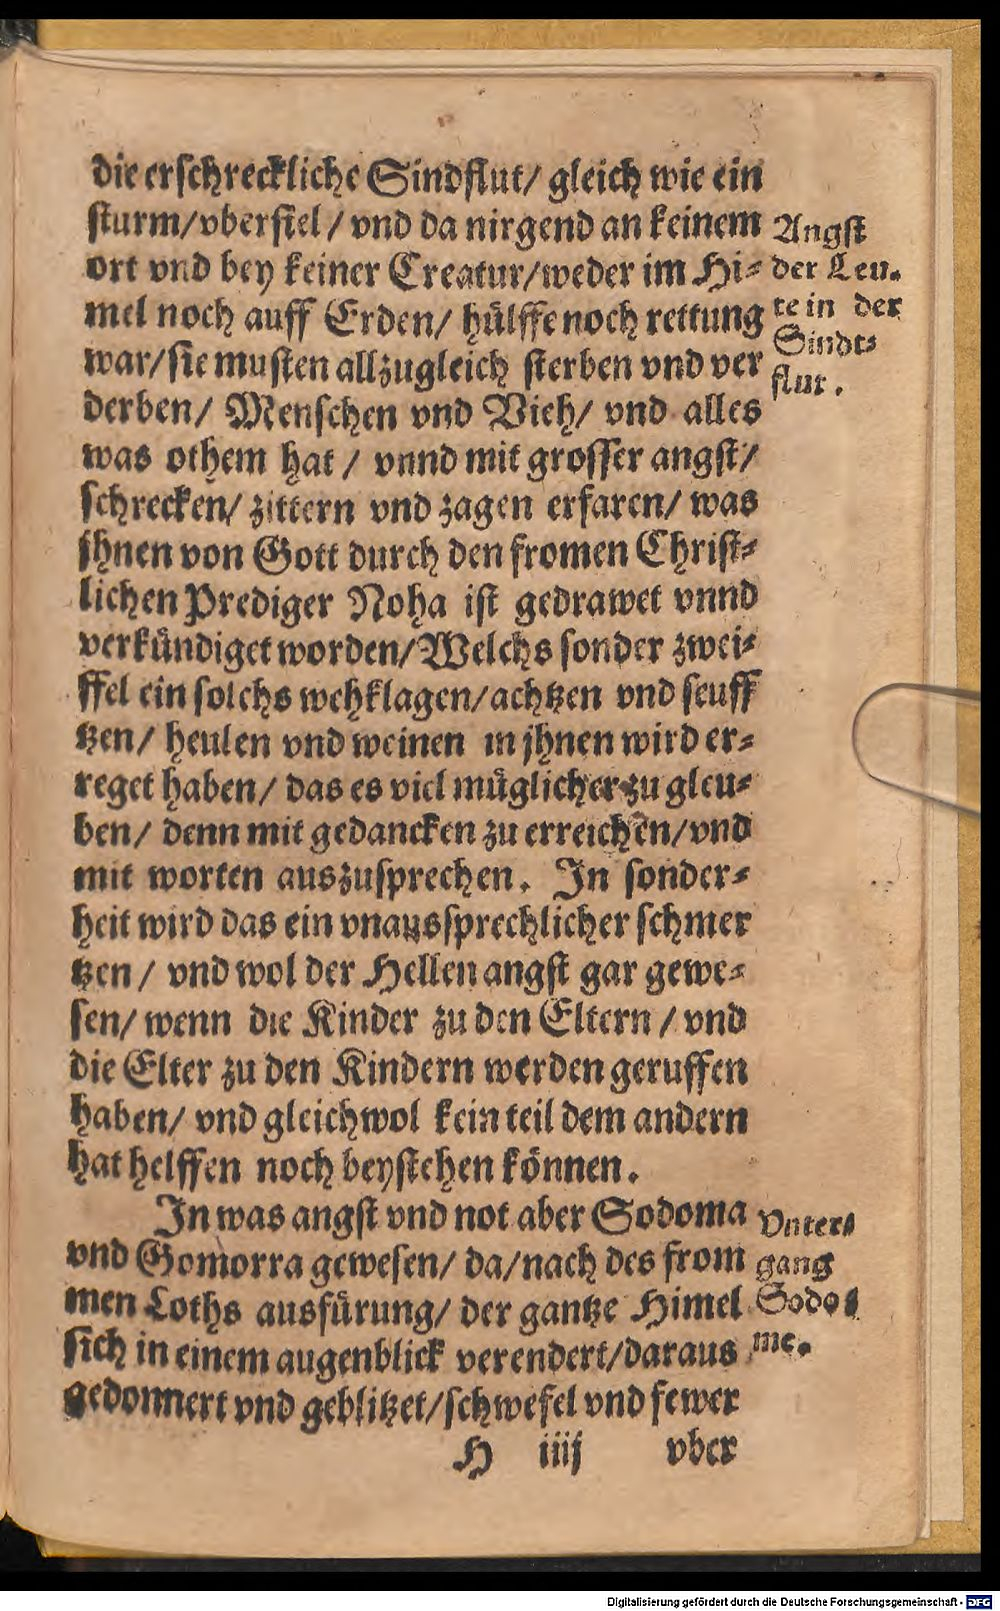 die erschreckliche Sindflut/ gleich wie ein
sturm/vberfiel/ vnd da nirgend an keinem
ort vnd bey keiner Creatur/weder im Hi-
mel noch auff Erden/ hülffe noch rettung
war/sie musten allzugleich sterben vnd ver
derben/ Menschen vnd Vieh/ vnd alles
was othem hat/ vnnd mit grosser angst/
schrecken/ zittern vnd zagen erfaren/ was
jhnen von Gott durch den fromen Christ-
lichen Prediger Noha ist gedrawet vnnd
verkündiget worden/Welchs sonder zwei-
ffel ein solchs wehklagen/achtzen vnd seuff
tzen/ heulen vnd weinen in jhnen wird er-
reget haben/ das es viel müglicher zu gleu-
ben/ denn mit gedancken zu erreichen/vnd
mit worten auszusprechen. In sonder-
heit wird das ein vnaussprechlicher schmer
tzen/ vnd wol der Hellen angst gar gewe-
sen/ wenn die Kinder zu den Eltern/ vnd
die Elter zu den Kindern werden geruffen
haben/ vnd gleichwol kein teil dem andern
hat helffen noch beystehen können.
In was angst vnd not aber Sodoma
vnd Gomorra gewesen/ da/nach des from
men Loths ausfürung/ der gantze Himel
sich in einem augenblick verendert/daraus
gedonnert vnd geblitzet/schwefel vnd fewer
H iiij vber
Angst
der Leu-
te in der
Sindt-
flut.
Vnter-
gang
Sodo-
me.
Digitalisierung gefördert durch die Deutsche Forschungsgemeinschaft - DFG